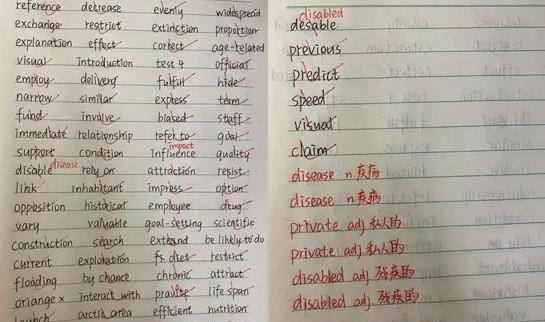 reference decrease evenly widespread
exchange restrict extinction proportion
explanation effect correct age-related
visual introduction test 4 official
employ delivery fulfull hide
narrow similar express term
fund involve biased staff
immediate relationship refer to goal
impact
support condition influence quality
disease
disable rely on attraction resist
link inhabitant impress option
opposition historical employee drug
vary valuable goal-setting scientific
construction search extend be likely to do
current exploration fx diet restrict
flooding by chance chronic attract
ariange × interact with life span
launch arctic area efficient nutrition
disabled
desable
previous
predict
speed
visual
claim
disease n.疾病
disease n.疾病
private adj.私人的
private adj.私人的
disabled adj.残疾的
disabled adj.残疾的